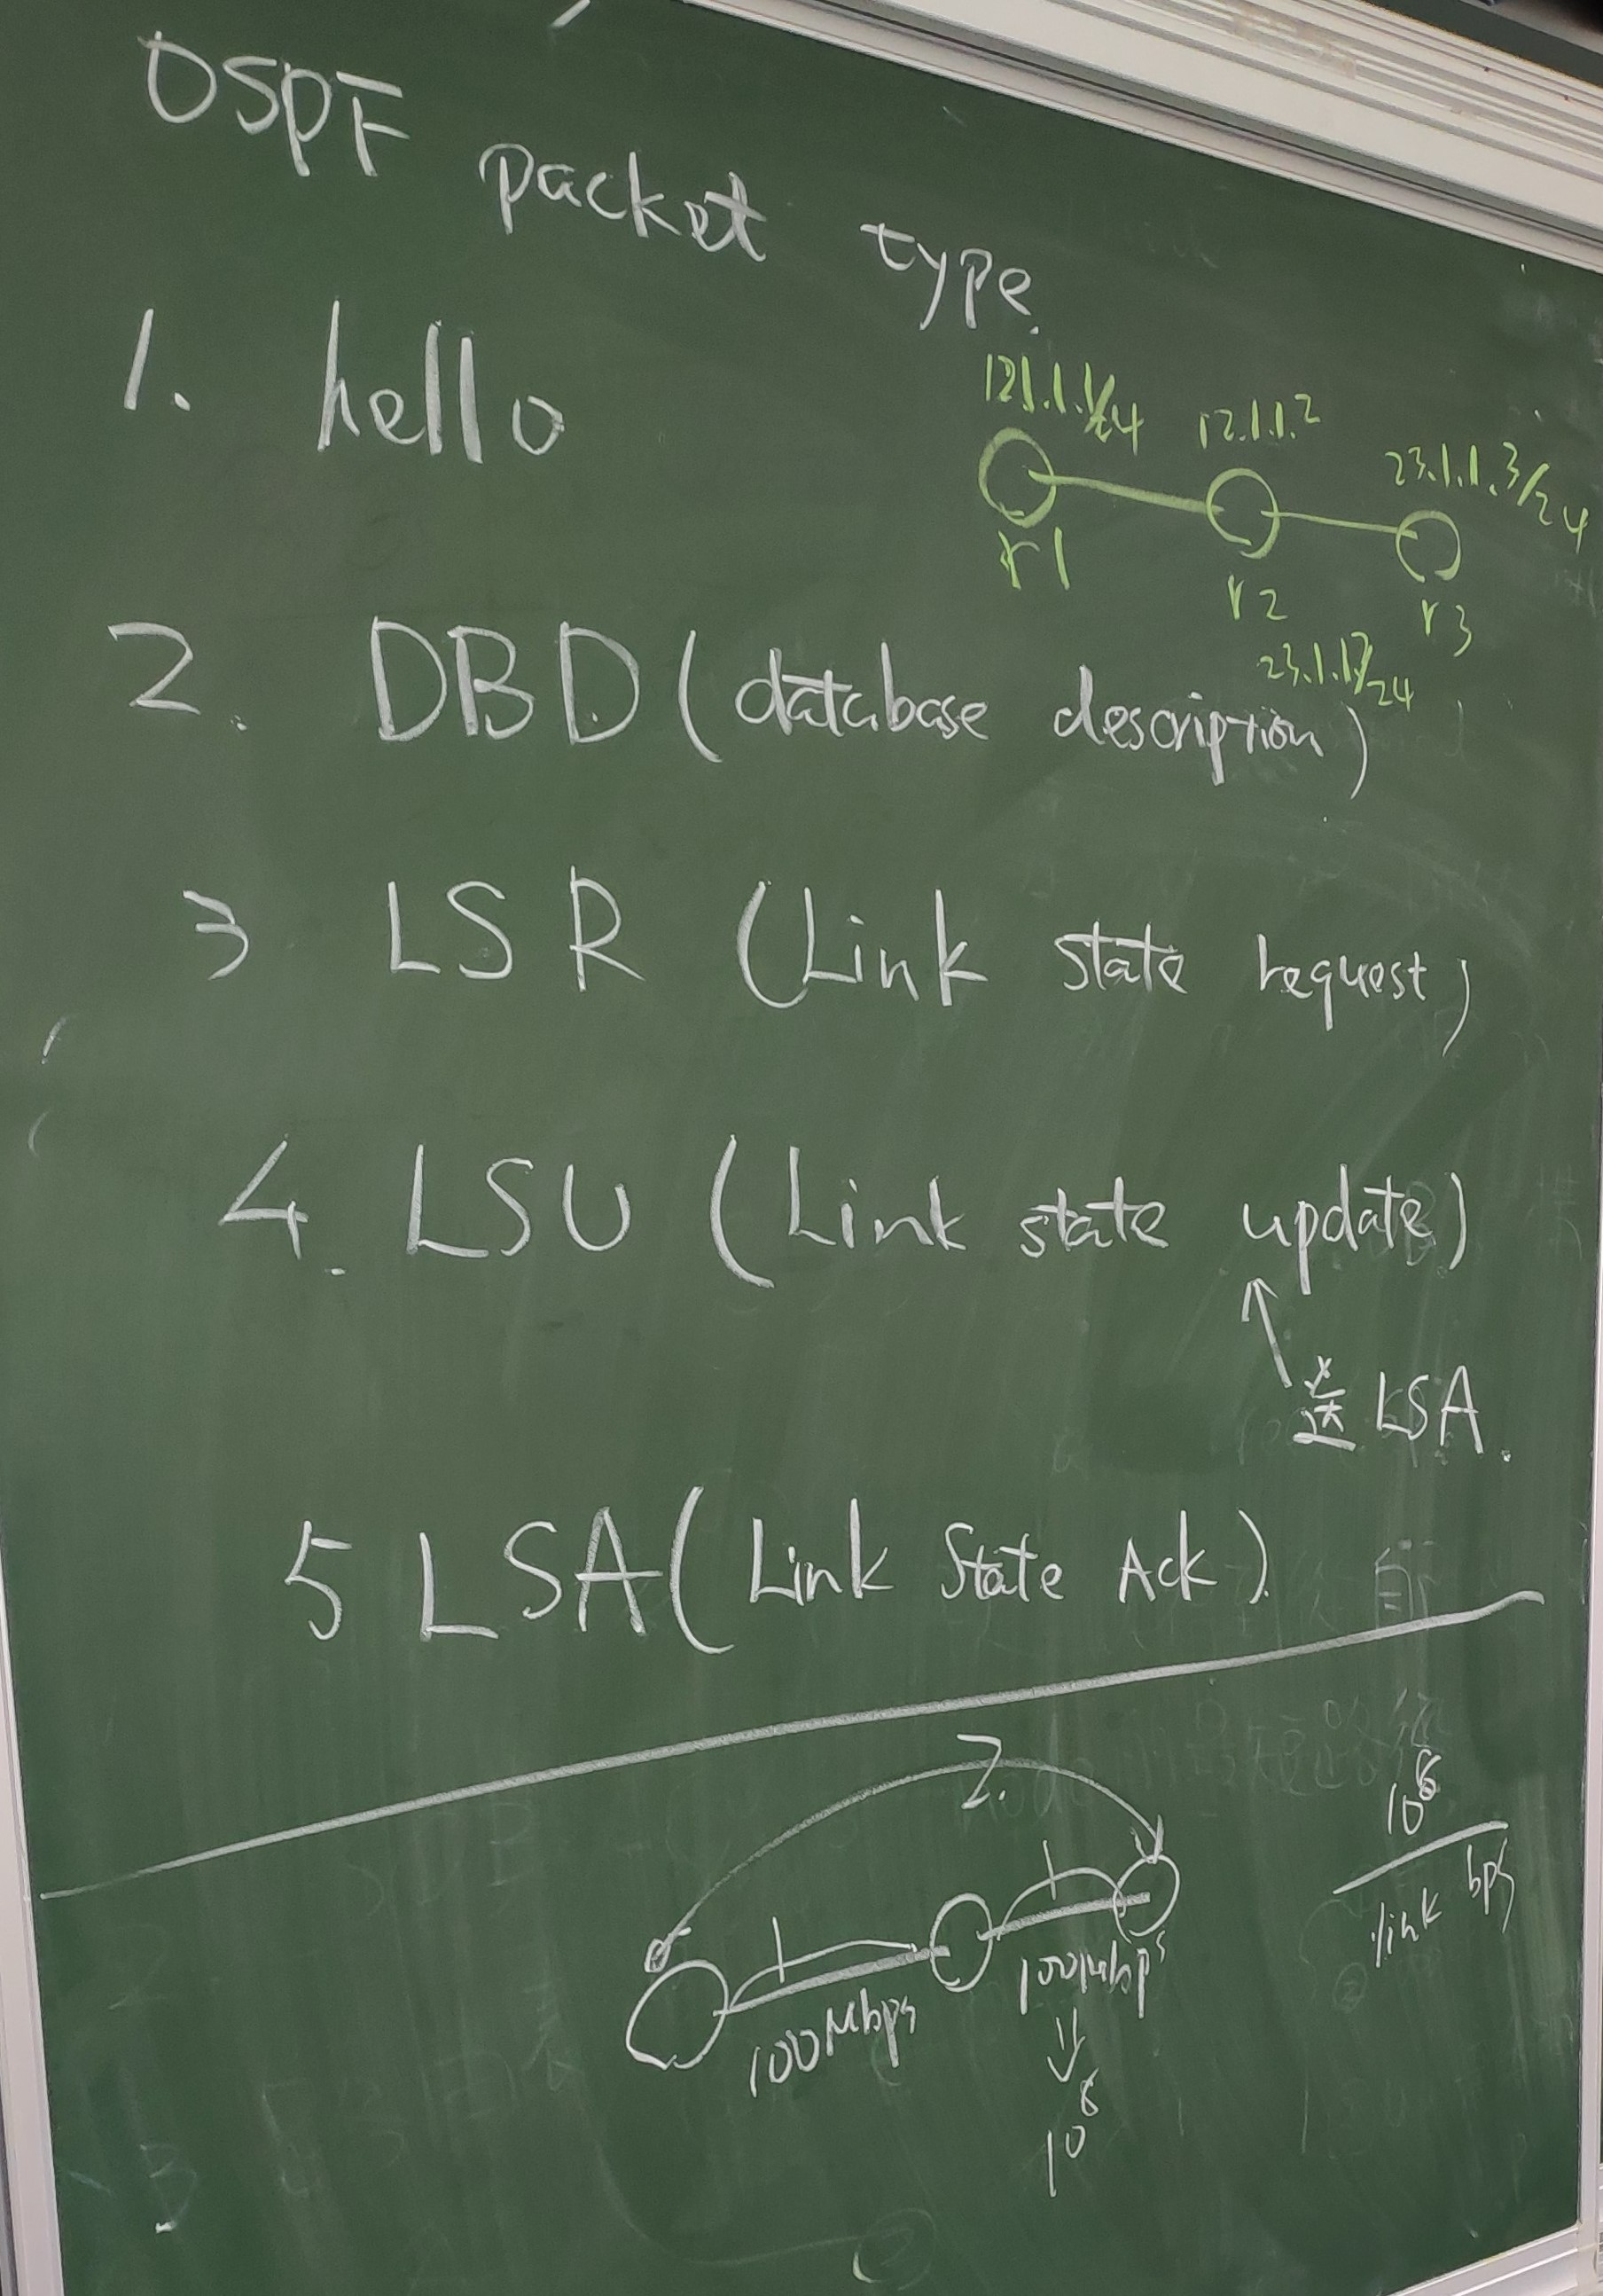 OSPF packet type
1. hello
121.1.1/24
12.1.1.2
23.1.1.3/24
r1
r2
r3
2. DBD (database description)
3 LSR (Link state request)
4. LSU (Link state update)
送 LSA.
5 LSA (Link State Ack)
2.
1
1
100Mbps
100Mbps
10⁸
10⁸
link bps